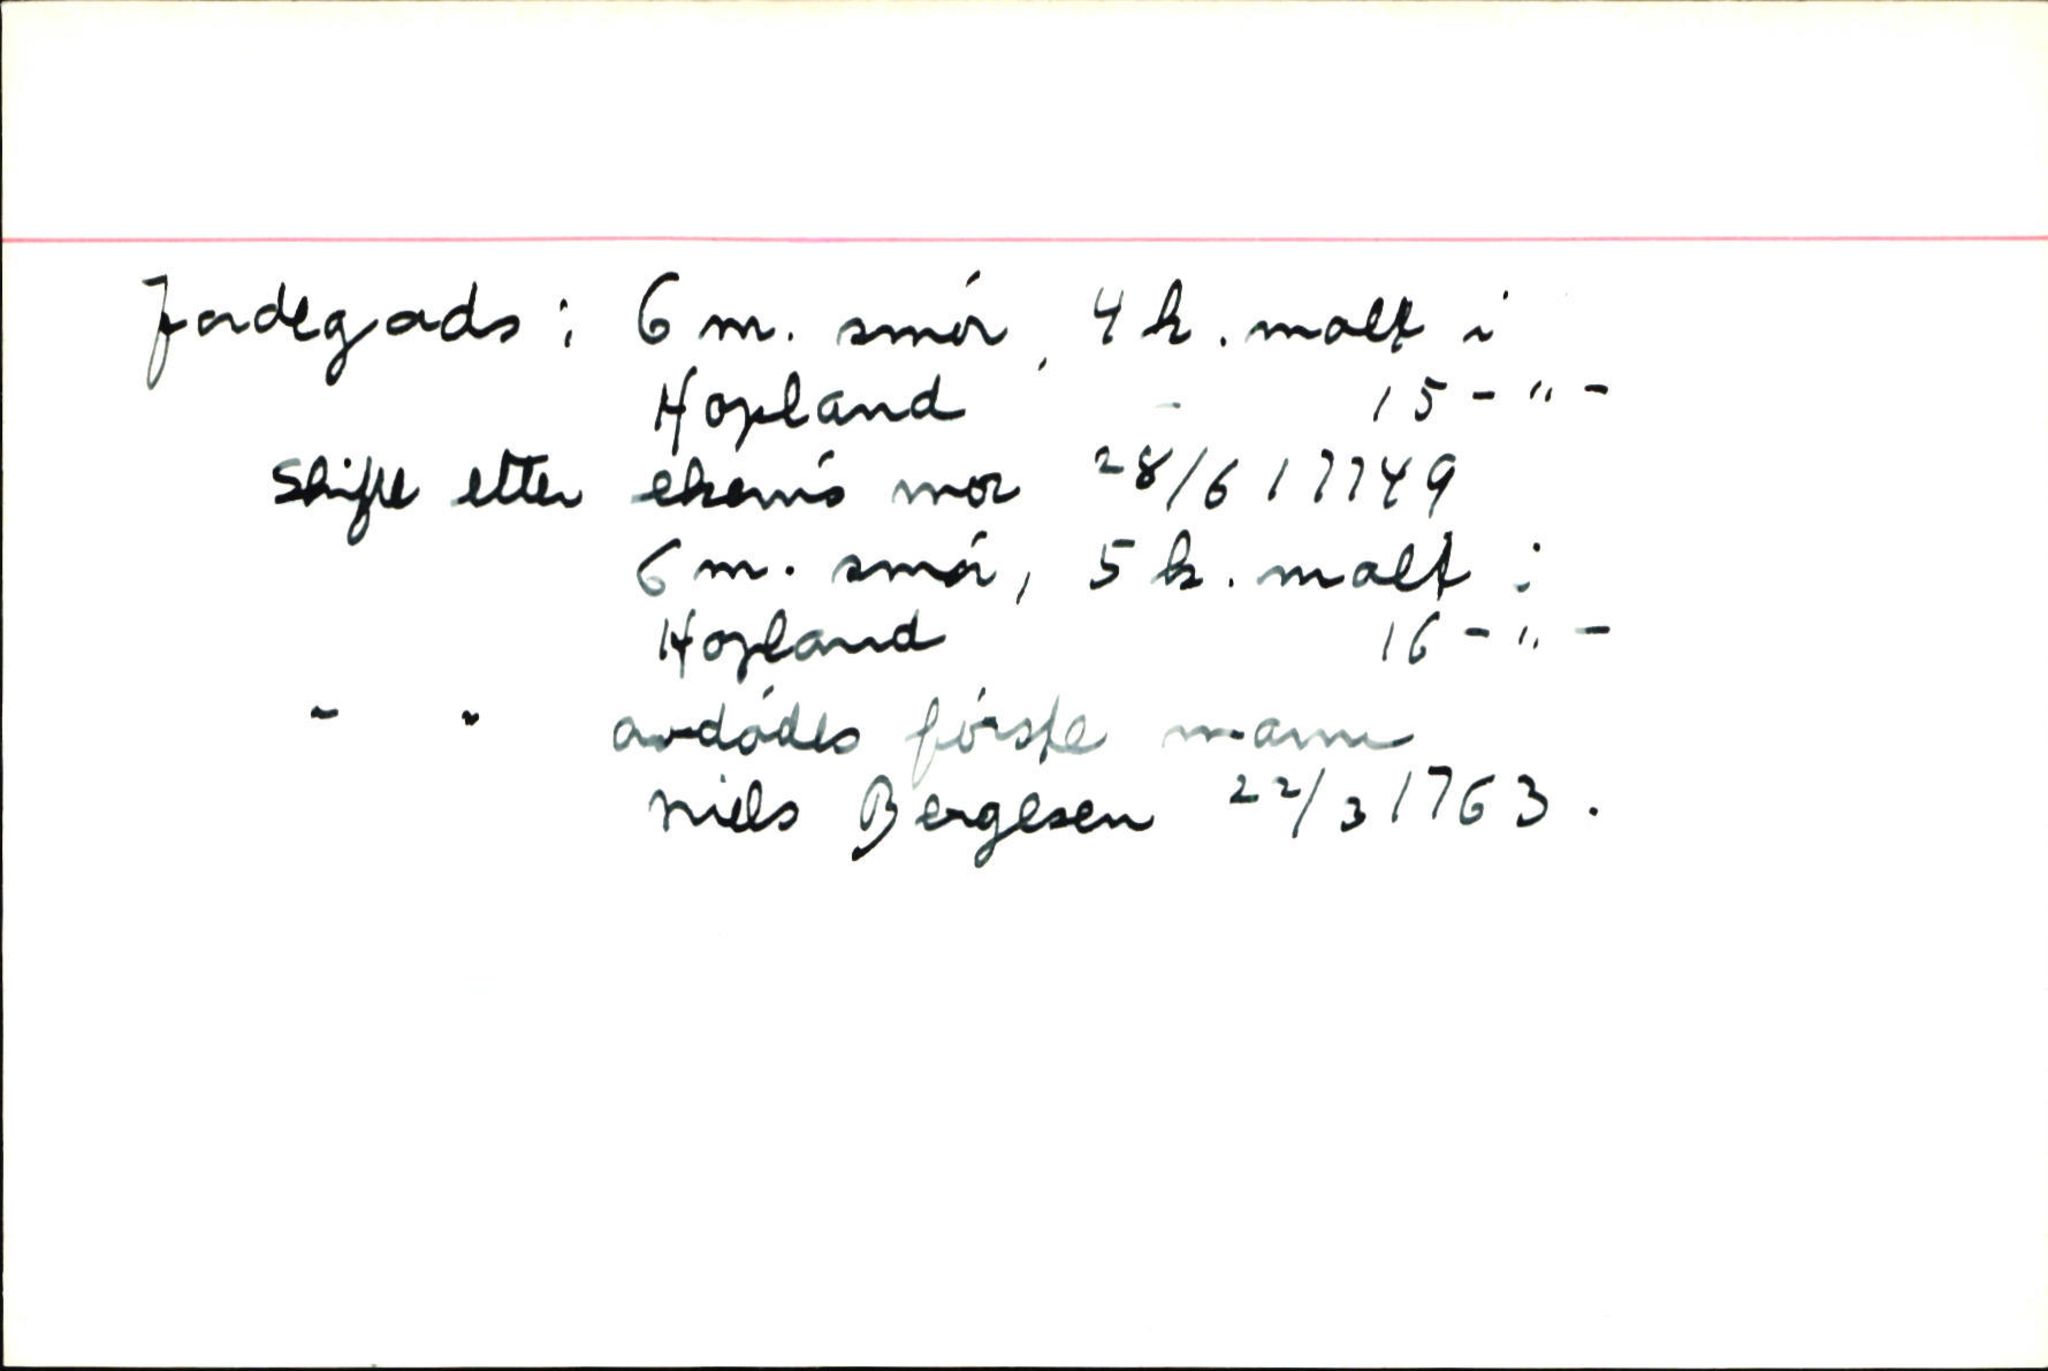 Jordegods: 6 m. smór, 4 k. malt i
Hopland - 15 - " -
Skifte etter ekem's mor 28/6 17749
6 m. smór, 5 k. malt i
Hopland 16 - " -
" " avdódes fórste mann
Niels Bergesen 22/3 1763.